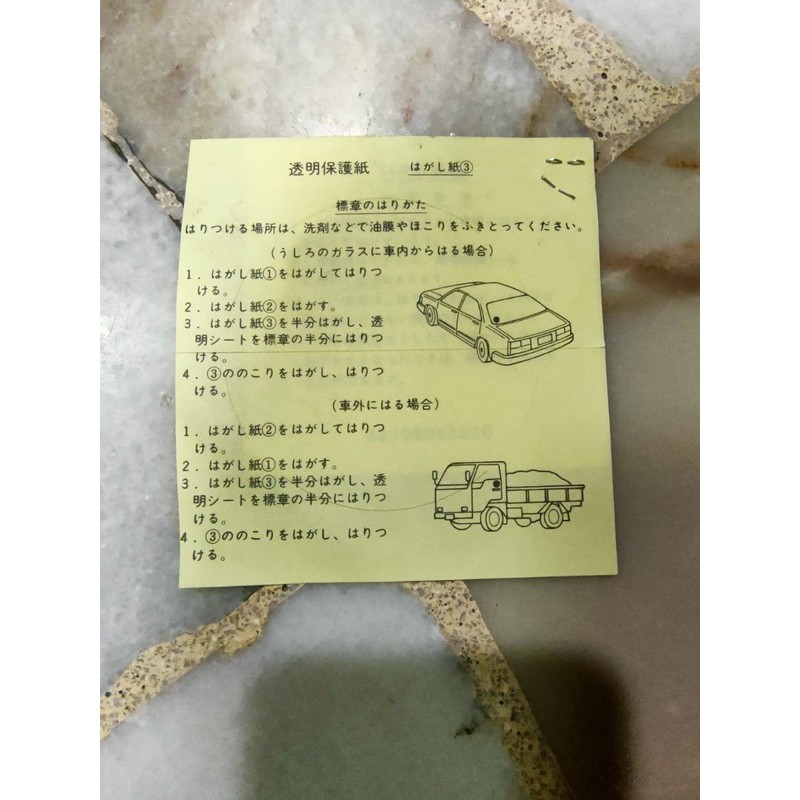 透明保護紙　はがし紙③
標章のはりかた
はりつける場所は、洗剤などで油膜やほこりをふきとってください。
（うしろのガラスに車内からはる場合）
1．はがし紙①をはがしてはりつ
ける。
2．はがし紙②をはがす。
3．はがし紙③を半分はがし、透
明シートを標章の半分にはりつ
ける。
4．③ののこりをはがし、はりつ
ける。
（車外にはる場合）
1．はがし紙②をはがしてはりつ
ける。
2．はがし紙①をはがす。
3．はがし紙③を半分はがし、透
明シートを標章の半分にはりつ
ける。
4．③ののこりをはがし、はりつ
ける。